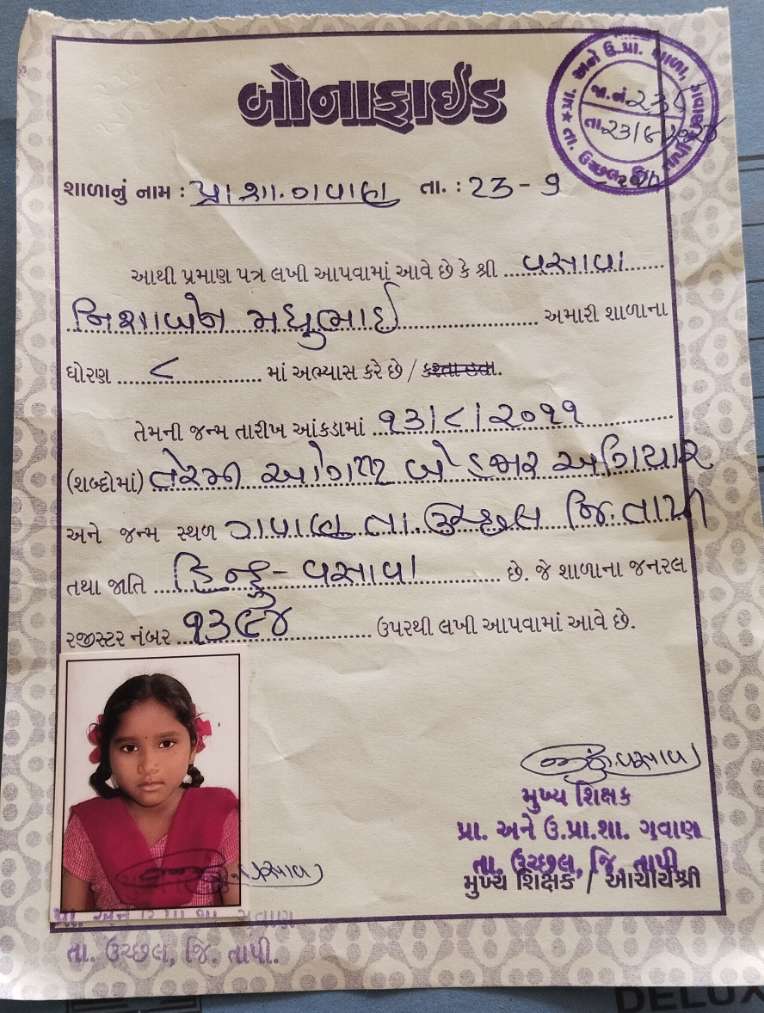 બોનાફાઈડ
પ્રા. અને ઉ.પ્રા. શાળા, ગવાણ
જા.નં. ૨૩૮
તા. ૨૩/૯/૨૦૨૪
તા. ઉચ્છલ, જિ. તાપી
શાળાનું નામ : પ્રા.શા. ગવાણ તા. : ૨૩-૯
આથી પ્રમાણ પત્ર લખી આપવામાં આવે છે કે શ્રી વસાવા
નિશાબેન મધુભાઈ અમારી શાળાના
ધોરણ ૮ માં અભ્યાસ કરે છે / કરતા હતા.
તેમની જન્મ તારીખ આંકડામાં ૧૩/૮/૨૦૧૧
(શબ્દોમાં) તેરમી ઓગષ્ટ બે હજાર અગિયાર
અને જન્મ સ્થળ ગવાણ તા. ઉચ્છલ જિ. તાપી
તથા જાતિ હિન્દુ - વસાવા છે. જે શાળાના જનરલ
રજીસ્ટર નંબર ૧૩૯૪ ઉપરથી લખી આપવામાં આવે છે.
વસાવા
મુખ્ય શિક્ષક
પ્રા. અને ઉ.પ્રા.શા. ગવાણ
તા. ઉચ્છલ, જિ. તાપી
મુખ્ય શિક્ષક / આચાર્યશ્રી
વસાવા
પ્રા. અને ઉ.પ્રા.શા. ગવાણ
તા. ઉચ્છલ, જિ. તાપી.
DELUX